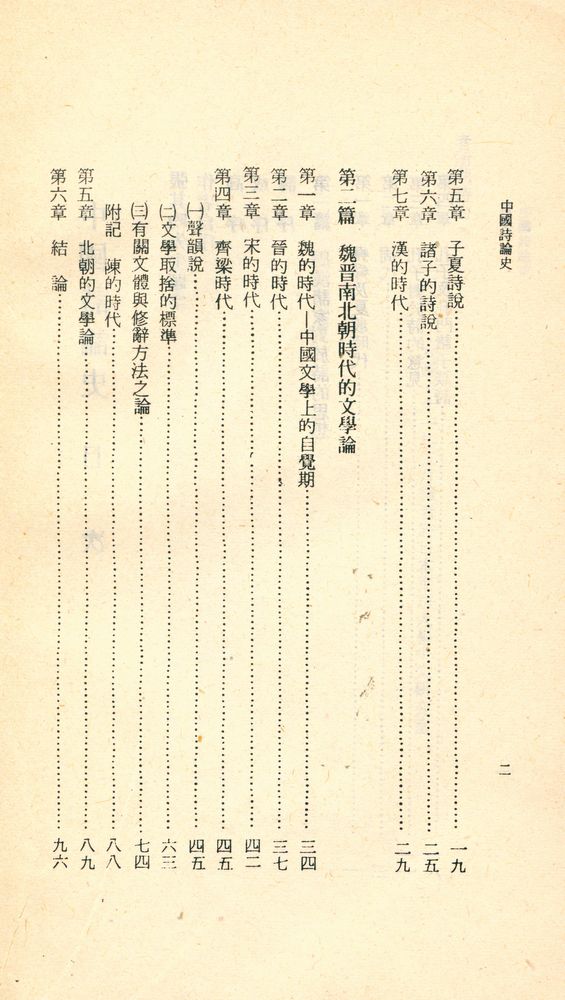 中國詩論史
二
第五章 子夏詩說…………一九
第六章 諸子的詩說…………二五
第七章 漢的時代…………二九
第二篇 魏晉南北朝時代的文學論
第一章 魏的時代—中國文學上的自覺期…………三四
第二章 晉的時代…………三七
第三章 宋的時代…………四二
第四章 齊梁時代…………四五
㈠聲韻說…………四五
㈡文學取捨的標準…………六三
㈢有關文體與修辭方法之論…………七四
附記 陳的時代…………八八
第五章 北朝的文學論…………八九
第六章 結 論…………九六